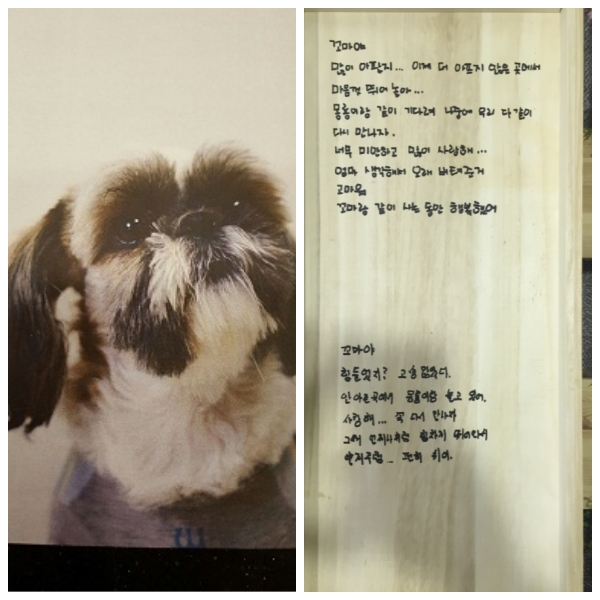 꼬마야
많이 아팠지... 이제 더 아프지 않은 곳에서
마음껏 뛰어 놀아...
몽롱이랑 같이 기다려 나중에 우리 다같이
다시 만나자.
너무 미안하고 많이 사랑해...
엄마 생각해서 오래 버텨준거
고마워
꼬마랑 같이 사는 동안 행복했어
꼬마야
힘들었지? 고생 많았다.
안아픈곳에서 놀고 있어.
사랑해... 꼭 다시 만나자
그때
편히 쉬어.